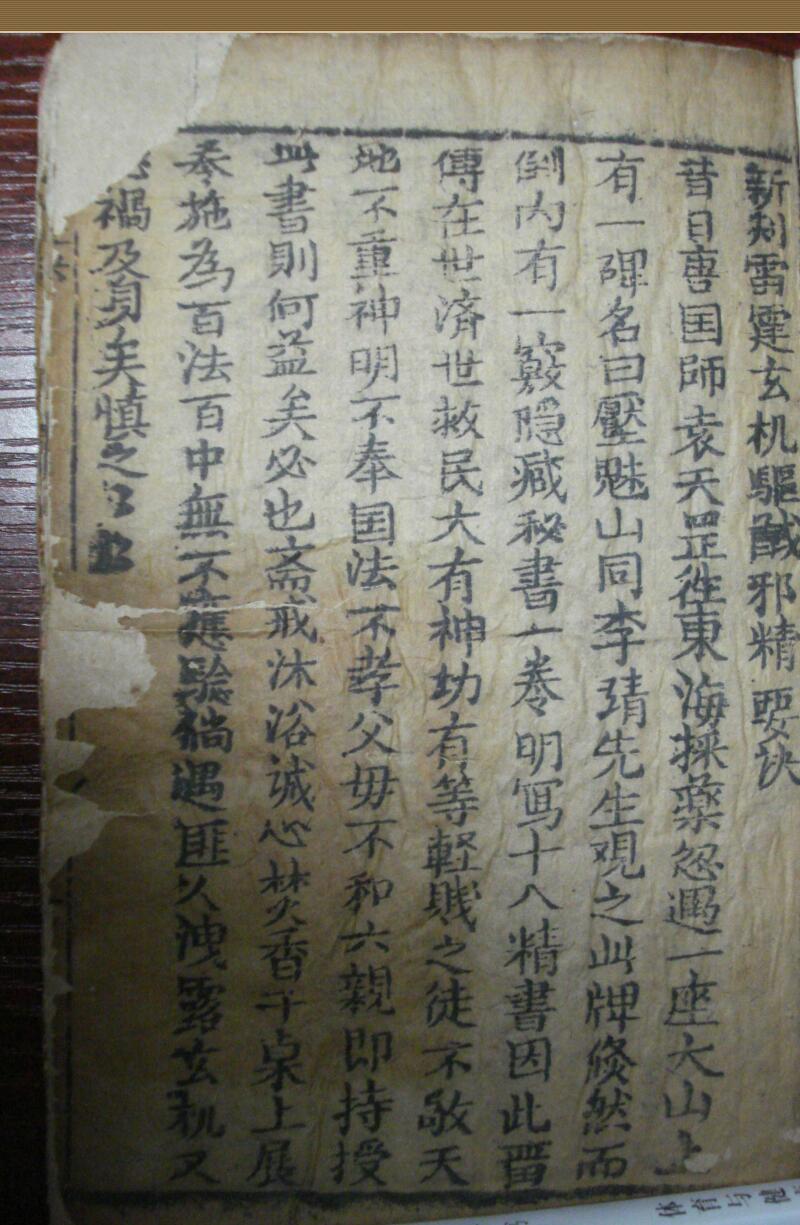 新刻雷霆玄机驅馘邪精要诀
昔日唐囯師袁天罡徃東海採藥忽遇一座大山上
有一碑名曰壓魅山同李靖先生观之此牌倐然而
倒内有一竅隠藏秘書一卷明寫十八精書因此畱
傳在世済世救民大有神功有等軽賎之徒不敬天
地不重神明不奉囯法不孝父毋不和六親即持授
此書則何益矣必也斎戒沐浴诚心焚香于桌上展
奉施為百法百中無不應驗倘遇匪人洩露玄机又
禍及身矣慎之